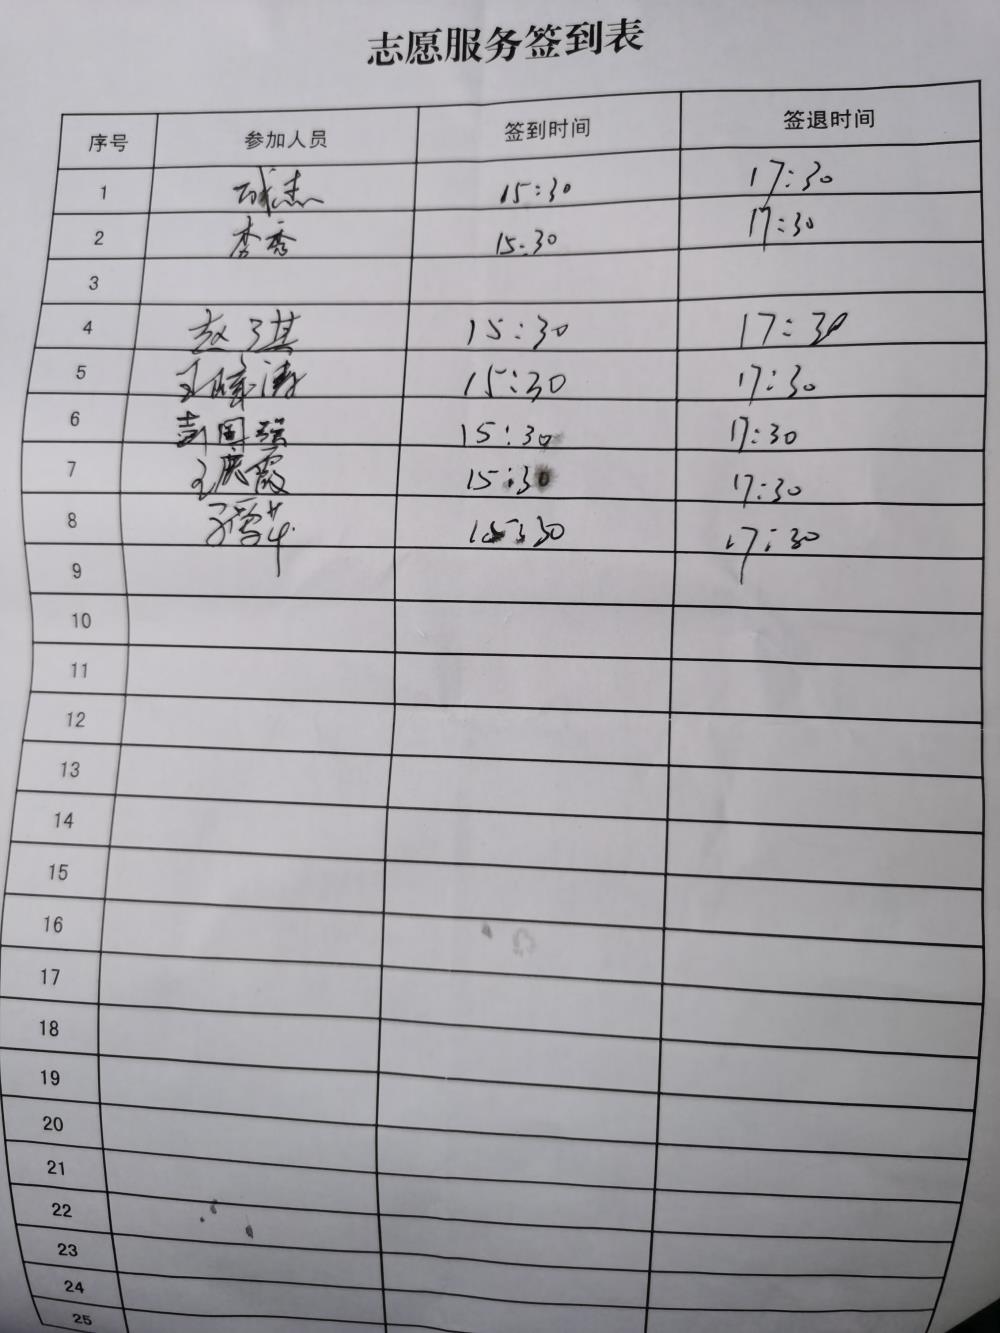 志愿服务签到表
序号 参加人员 签到时间 签退时间
1 杰 15:30 17:30
2 李秀 15:30 17:30
3
4 赵子琪 15:30 17:30
5 王晓涛 15:30 17:30
6 彭国强 15:30 17:30
7 王庆霞 15:30 17:30
8 15:30 17:30
9
10
11
12
13
14
15
16
17
18
19
20
21
22
23
24
25